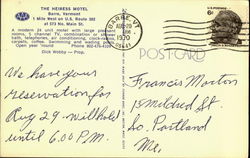 THE HEIRESS MOTEL
Barre, Vermont
1 Mile West on U.S. Route 302
at 573 No. Main St.
A modern 24 unit motel with large pleasant
rooms, 5 channel TV, combination or shower
bath, telephones, air conditioning, clock-radios,
carpets, coffee. Swimming and
Open year 'round Phone 802-476-4109
Dick Wobby — Prop.
BARRE, VT.
AUG 20
1970
05641
U.S. POSTAGE
6¢
POST CARD
We have your
reservation for
Aug 29 - will hold
until 6:00 P.M.
Francis Morton
15 Mildred St.
So. Portland
Me.